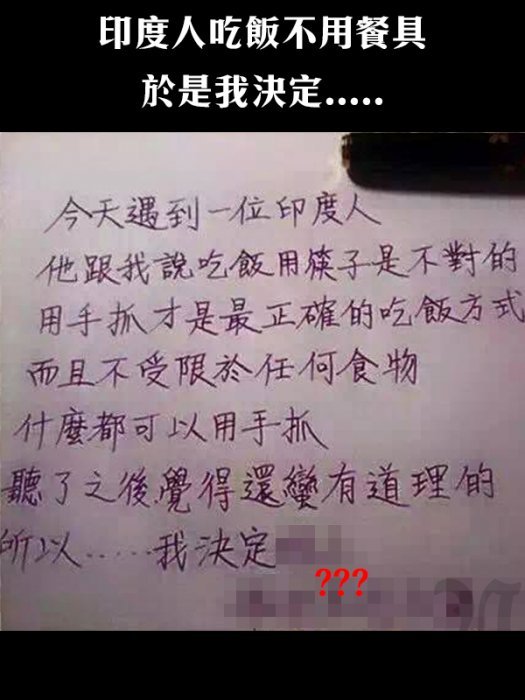 印度人吃飯不用餐具
於是我決定.....
今天遇到一位印度人
他跟我說吃飯用筷子是不對的
用手抓才是最正確的吃飯方式
而且不受限於任何食物
什麼都可以用手抓
聽了之後覺得還蠻有道理的
所以......我決定
???